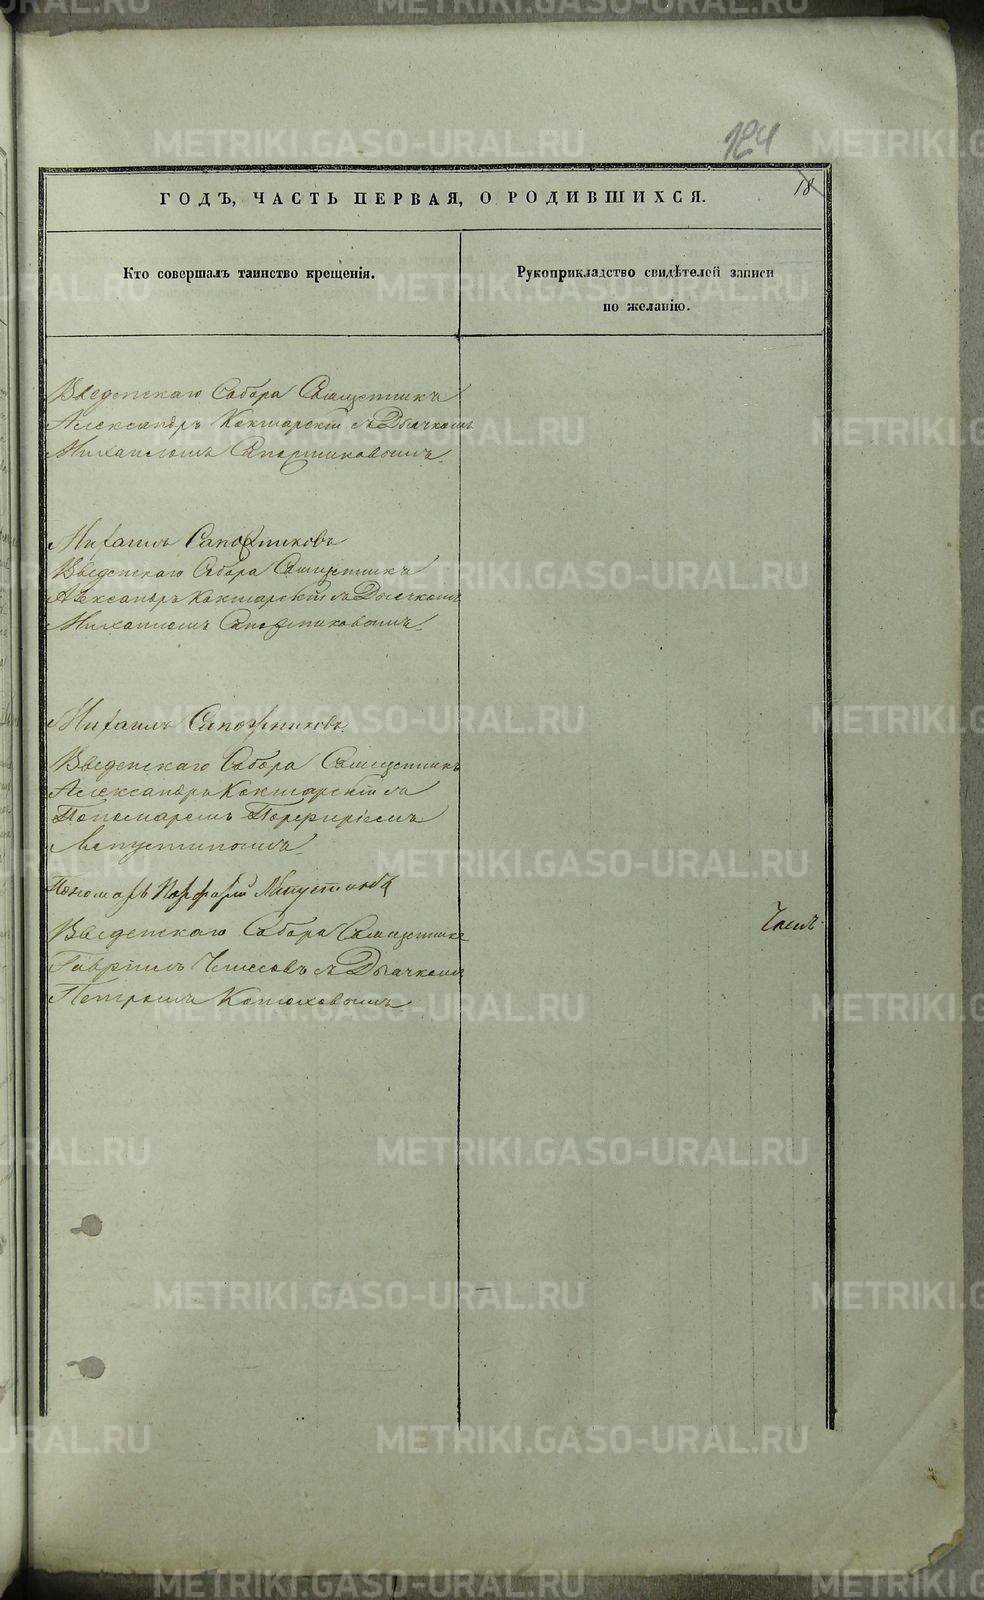 METRIKI.GASO-URAL.RU
124
18
ГОДЪ, ЧАСТЬ ПЕРВАЯ, О РОДИВШИХСЯ.
Кто совершалъ таинство крещенія.
Рукоприкладство свидѣтелей записи
по желанію.
Введенскаго Собора Священникъ
Александръ Кокшарскій съ Дьячкомъ
Михаиломъ Сапожниковымъ.
Михаилъ Сапожниковъ
Введенскаго Собора Священникъ
Александръ Кокшарскій съ Дьячкомъ
Михаиломъ Сапожниковымъ.
Михаилъ Сапожниковъ.
Введенскаго Собора Священникъ
Александръ Кокшарскій съ
Пономаремъ Порфиріемъ
Пономарь Порфирій
Введенскаго Собора Священникъ
Гавріилъ съ Дьячкомъ
Петромъ Конюховымъ